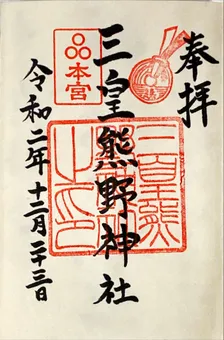 奉拝
三皇熊野神社
本宮
令和二年十二月二十三日
三皇熊